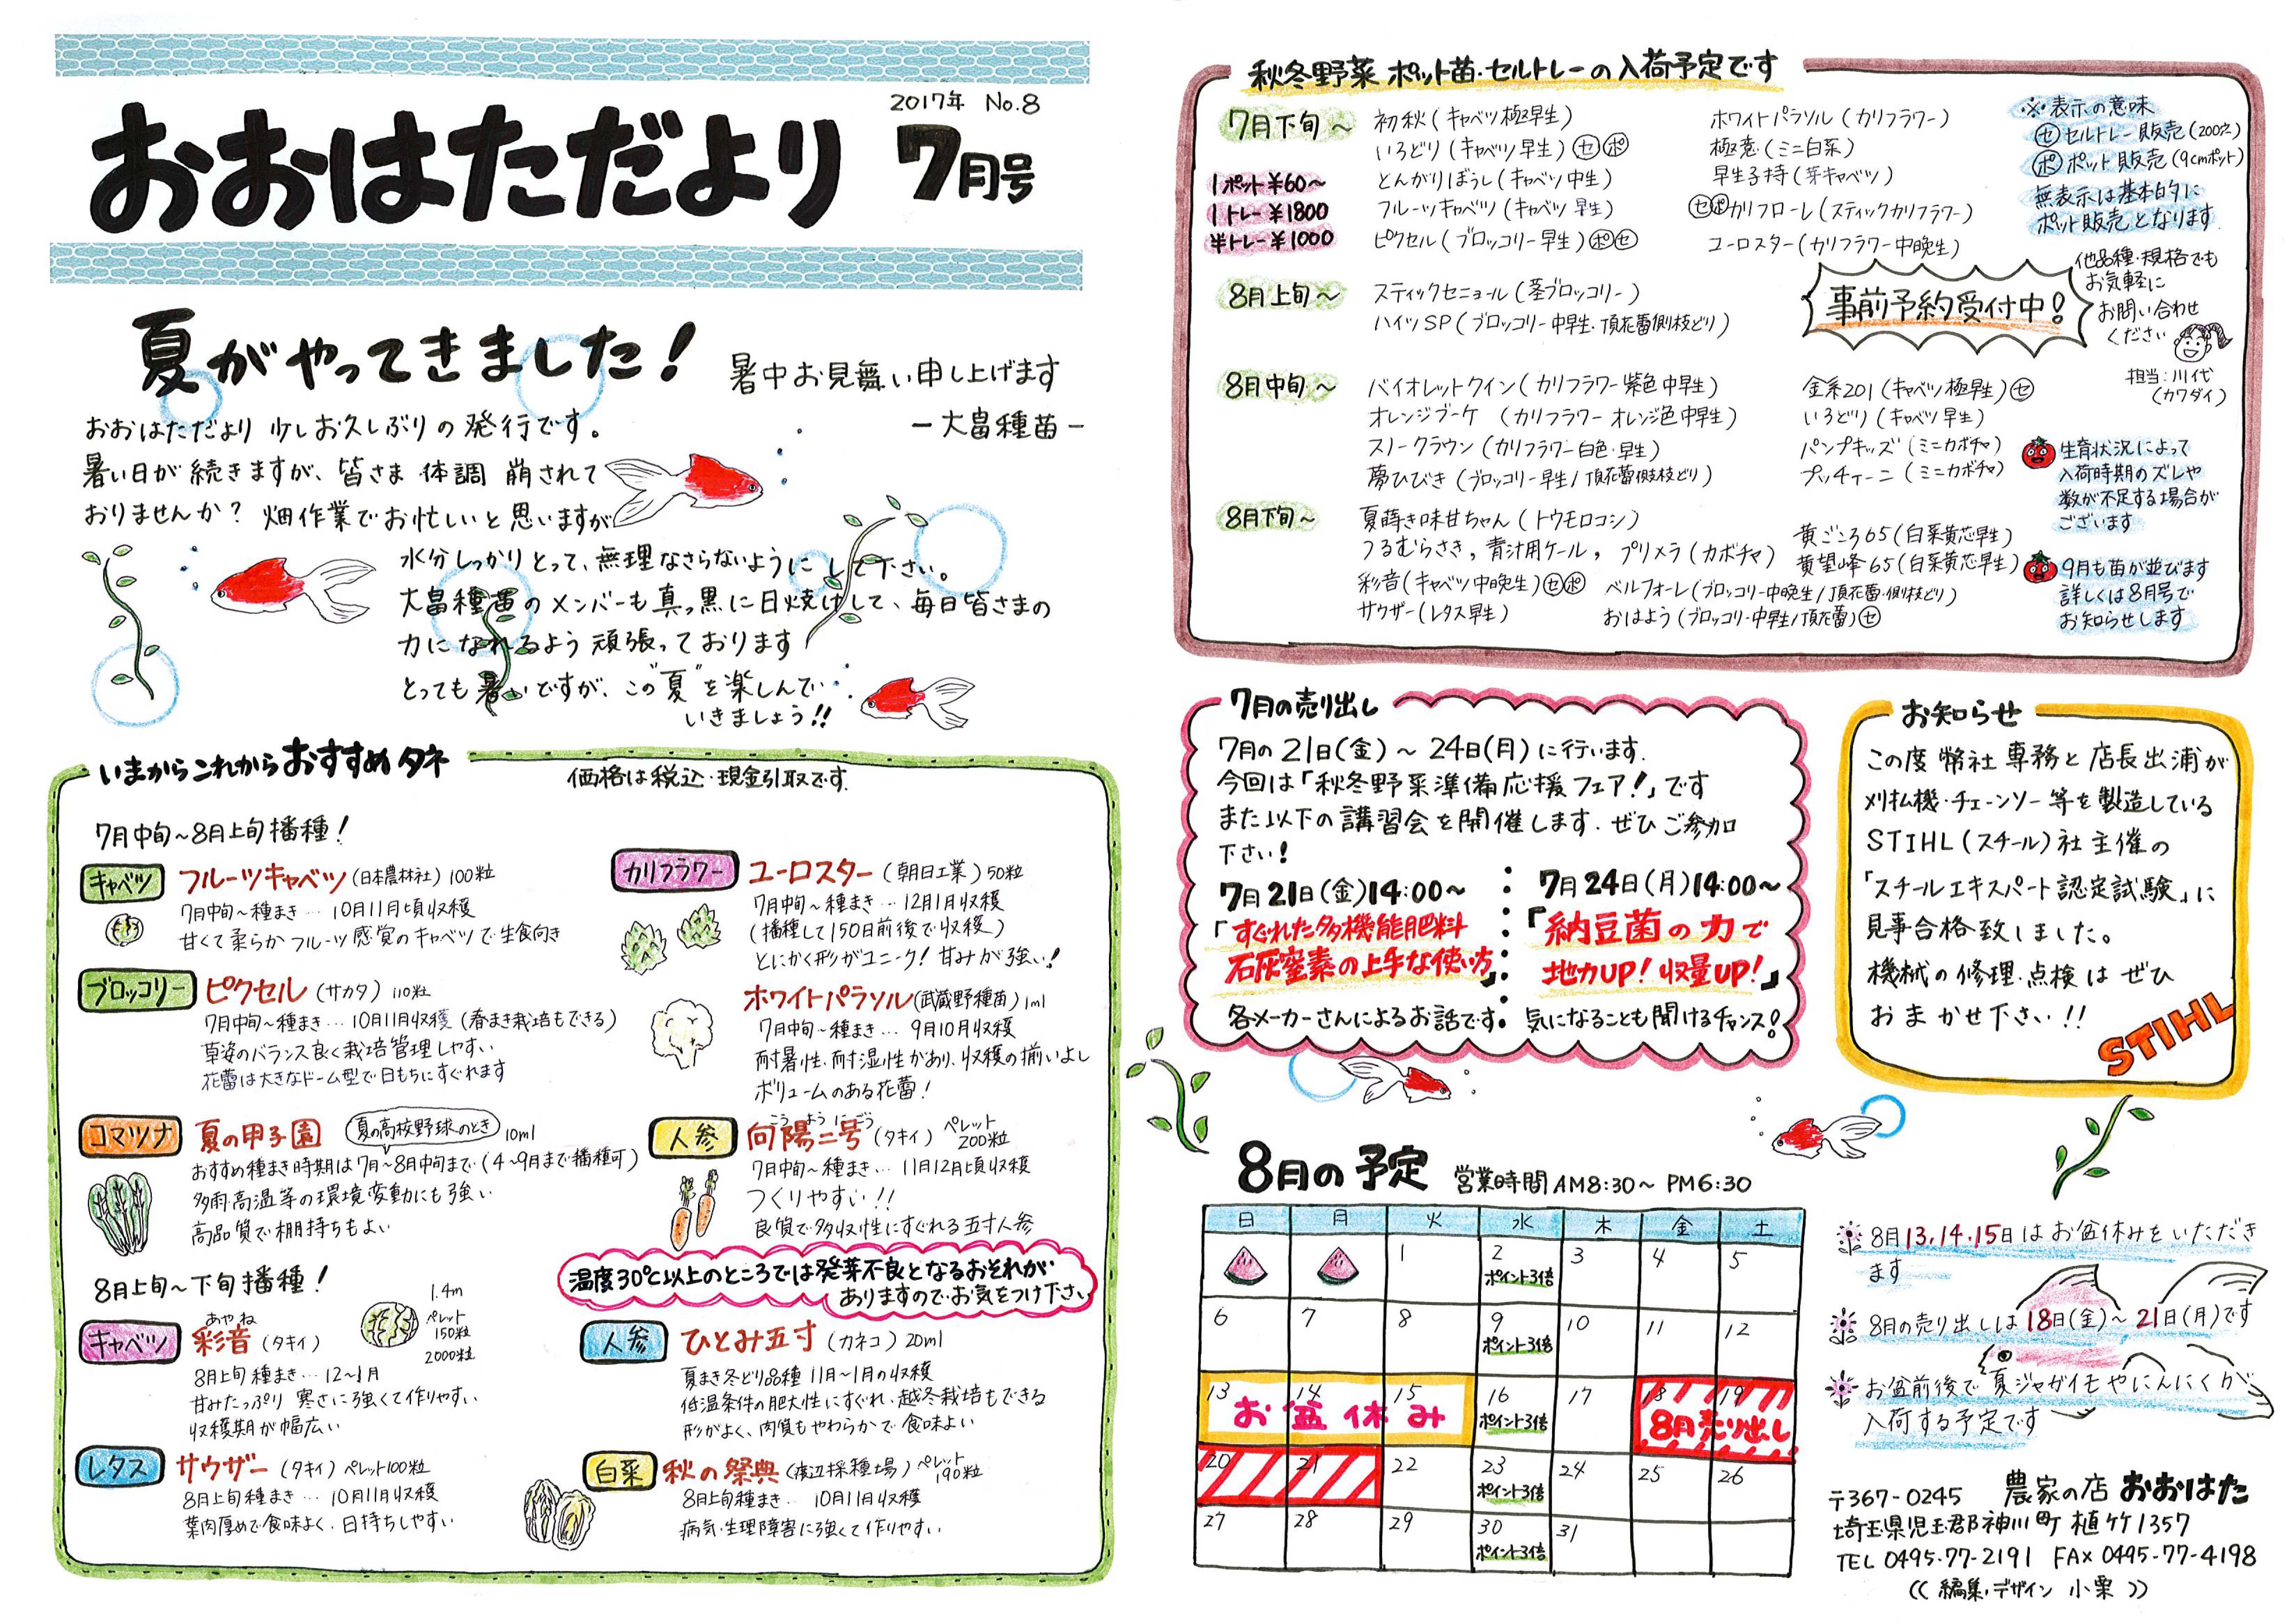 2017年 No.8
おおはただより 7月号
夏がやってきました!
暑中お見舞い申し上げます
ー大畠種苗ー
おおはただより 少しお久しぶりの発行です。
暑い日が続きますが、皆さま 体調 崩されて
おりませんか? 畑作業でお忙しいと思いますが
水分しっかりとって、無理なさらないようにして下さい。
大畠種苗のメンバーも真っ黒に日焼けして、毎日皆さまの
力になれるよう頑張っております
とっても暑いですが、この"夏"を楽しんで
いきましょう!!
いまからこれからおすすめタネ
価格は税込・現金引取です。
7月中旬〜8月上旬播種!
キャベツ フルーツキャベツ(日本農林社)100粒
7月中旬〜種まき… 10月11月頃収穫
甘くて柔らか フルーツ感覚のキャベツで生食向き
ブロッコリー ピクセル(サカタ)110粒
7月中旬〜種まき… 10月11月収穫(春まき栽培もできる)
草姿のバランス良く栽培管理しやすい
花蕾は大きなドーム型で日もちにすぐれます
コマツナ 夏の甲子園 夏の高校野球のとき 10ml
おすすめ種まき時期は7月〜8月中旬まで(4〜9月まで播種可)
多雨・高温等の環境変動にも強い
高品質で棚持ちもよい
カリフラワー ユーロスター(朝日工業)50粒
7月中旬〜種まき… 12月1月収穫
(播種して150日前後で収穫)
とにかく形がユニーク! 甘みが強い!
ホワイトパラソル(武蔵野種苗)1ml
7月中旬〜種まき… 9月10月収穫
耐暑性・耐湿性があり、収穫の揃いよし
ボリュームのある花蕾!
人参 向陽二号(タキイ) ペレット200粒
こうようにごう
7月中旬〜種まき… 11月12月頃収穫
つくりやすい!!
良質で多収性にすぐれる五寸人参
温度30℃以上のところでは発芽不良となるおそれが
ありますのでお気をつけ下さい
8月上旬〜下旬播種!
あやね
キャベツ 彩音(タキイ)
1.4m
ペレット
150粒
2000粒
8月上旬種まき… 12〜1月
甘みたっぷり 寒さに強くて作りやすい
収穫期が幅広い
レタス サウザー(タキイ)ペレット100粒
8月上旬種まき… 10月11月収穫
葉肉厚めで食味よく、日持ちしやすい
人参 ひとみ五寸(カネコ)20ml
夏まき冬どり品種 11月〜1月の収穫
低温条件の肥大性にすぐれ、越冬栽培もできる
形がよく、肉質もやわらかで食味よい
白菜 秋の祭典(渡辺採種場)ペレット190粒
8月上旬種まき… 10月11月収穫
病気・生理障害に強くて作りやすい
秋冬野菜 ポット苗・セルトレーの入荷予定です
7月下旬〜
1ポット¥60〜
1トレー¥1800
半トレー¥1000
初秋(キャベツ極早生)
いろどり(キャベツ早生)セ ポ
とんがりぼうし(キャベツ中生)
フルーツキャベツ(キャベツ 早生)
ピクセル(ブロッコリー早生)ポ セ
ホワイトパラソル(カリフラワー)
極意(ミニ白菜)
早生子持(芽キャベツ)
セ ポ カリフローレ(スティックカリフラワー)
ユーロスター(カリフラワー中晩生)
※表示の意味
セ セルトレー販売(200穴)
ポ ポット販売(9cmポット)
無表示は基本的に
ポット販売となります
8月上旬〜
スティックセニョール(茎ブロッコリー)
ハイツSP(ブロッコリー中早生・頂花蕾側枝どり)
事前予約受付中!
他品種・規格でも
お気軽に
お問い合わせ
ください
担当:川代
(カワダイ)
8月中旬〜
バイオレットクイン(カリフラワー紫色中早生)
オレンジブーケ (カリフラワーオレンジ色中早生)
スノークラウン(カリフラワー白色・早生)
夢ひびき(ブロッコリー早生/頂花蕾側枝どり)
金系201(キャベツ極早生)セ
いろどり(キャベツ早生)
パンプキッズ(ミニカボチャ)
プッチィーニ(ミニカボチャ)
生育状況によって
入荷時期のズレや
数が不足する場合が
ございます
8月下旬〜
夏蒔き味甘ちゃん(トウモロコシ)
つるむらさき, 青汁用ケール, プリメラ(カボチャ)
彩音(キャベツ中晩生)セ ポ
サウザー(レタス早生)
黄ごころ65(白菜黄芯早生)
黄望峰65(白菜黄芯早生)
ベルフォーレ(ブロッコリー中晩生/頂花蕾・側枝どり)
おはよう(ブロッコリー中早生/頂花蕾)セ
9月も苗が並びます
詳しくは8月号で
お知らせします
7月の売り出し
7月の21日(金)〜24日(月)に行います.
今回は「秋冬野菜準備応援フェア!」です
また以下の講習会を開催します. ぜひご参加
下さい!
7月21日(金)14:00〜
「すぐれた多機能肥料
石灰窒素の上手な使い方」
7月24日(月)14:00〜
「納豆菌の力で
地力UP! 収量UP!」
各メーカーさんによるお話です。気になることも聞けるチャンス!
お知らせ
この度 弊社 専務と店長出浦が
刈払機・チェーンソー等を製造している
STIHL(スチール)社主催の
「スチールエキスパート認定試験」に
見事合格致しました。
機械の修理・点検はぜひ
おまかせ下さい!!
STIHL
8月の予定 営業時間AM8:30〜PM6:30
日 月 火 水 木 金 土
1 2 3 4 5
ポイント3倍
6 7 8 9 10 11 12
ポイント3倍
13 14 15 16 17 18 19
お盆休み ポイント3倍 8月売り出し
20 21 22 23 24 25 26
ポイント3倍
27 28 29 30 31
ポイント3倍
8月13,14,15日はお盆休みをいただき
ます
8月の売り出しは18日(金)〜21日(月)です
お盆前後で夏ジャガイモやにんにくが
入荷する予定です
〒367-0245 農家の店 おおはた
埼玉県児玉郡神川町植竹1357
TEL 0495-77-2191 FAX 0495-77-4198
((編集・デザイン 小栗))